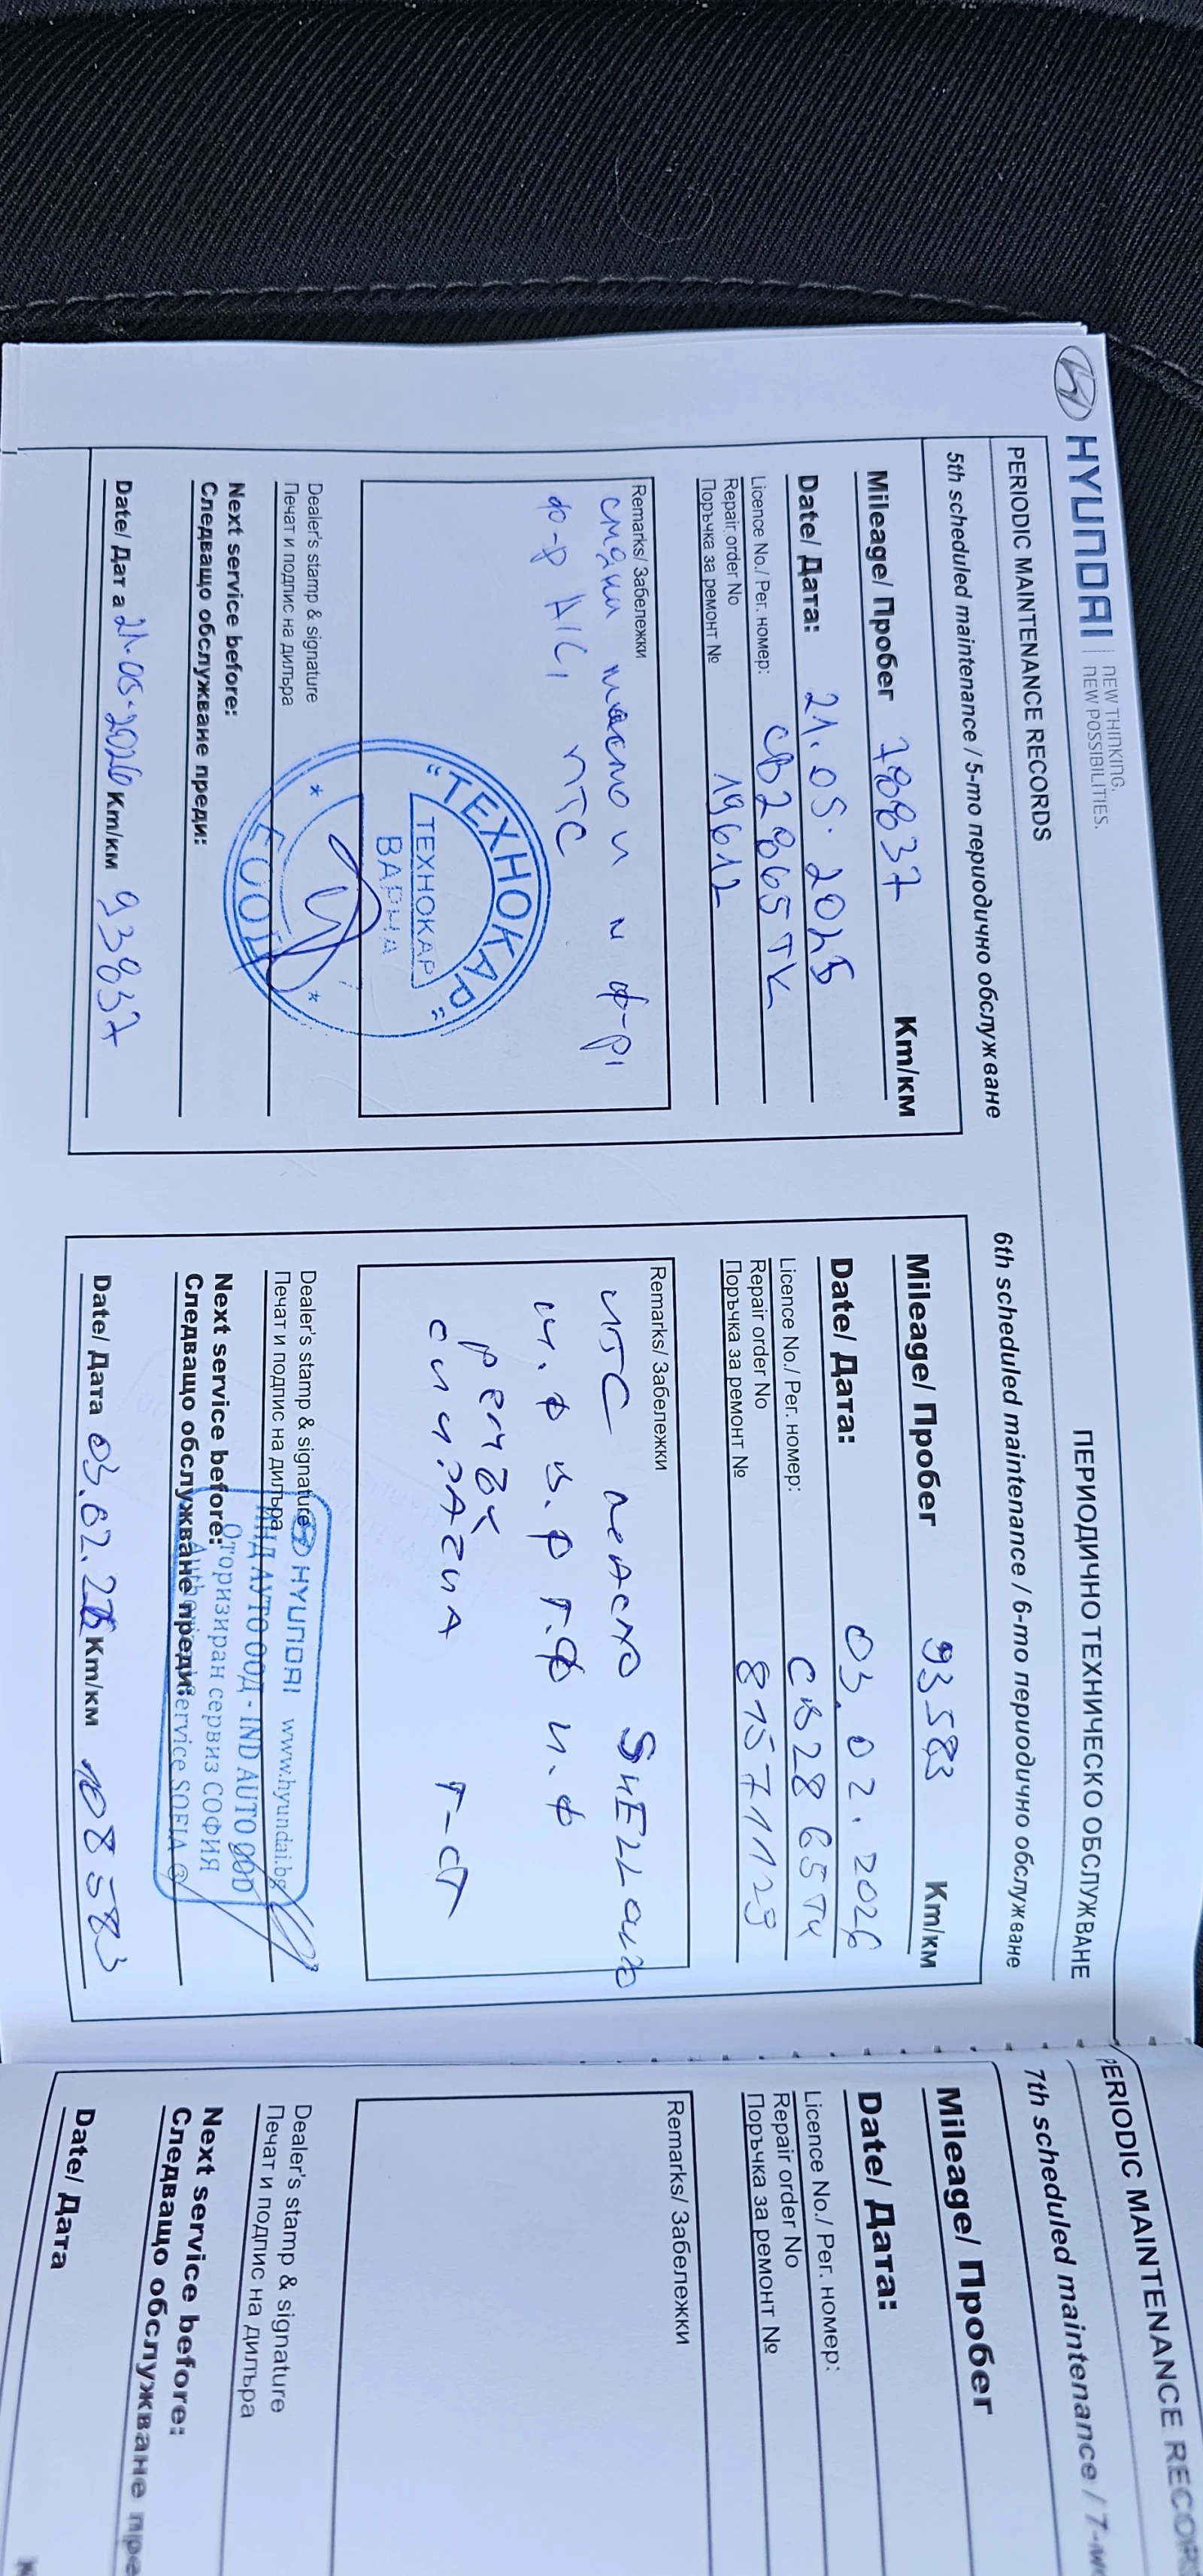 HYUNDAI | NEW THINKING.
NEW POSSIBILITIES.
PERIODIC MAINTENANCE RECORDS
ПЕРИОДИЧНО ТЕХНИЧЕСКО ОБСЛУЖВАНЕ
5th scheduled maintenance / 5-то периодично обслужване
Mileage/ Пробег 78837 Km/км
Date/ Дата: 21.05.2025
Licence No./ Рег. номер: СВ2865ТК
Repair order No
Поръчка за ремонт № 19612
Remarks/ Забележки
смяна масло и м ф-р,
ф-р А/С, ПТС
"ТЕХНОКАР"
ТЕХНОКАР
ВАРНА
ЕООД
Dealer's stamp & signature
Печат и подпис на дилъра
Next service before:
Следващо обслужване преди:
Date/ Дата 21.05.2026 Km/км 93837
6th scheduled maintenance / 6-то периодично обслужване
Mileage/ Пробег 93583 Km/км
Date/ Дата: 03.02.2026
Licence No./ Рег. номер: СВ2865ТК
Repair order No
Поръчка за ремонт № 81571129
Remarks/ Забележки
SHELL
Dealer's stamp & signature
Печат и подпис на дилъра
HYUNDAI www.hyundai.bg
ИНД АУТО ООД - IND AUTO OOD
Оторизиран сервиз СОФИЯ
Authorized Service SOFIA
Next service before:
Следващо обслужване преди:
Date/ Дата 03.02. Km/км 108583
PERIODIC MAINTENANCE RECOR
7th scheduled maintenance / 7-м
Mileage/ Пробег
Date/ Дата:
Licence No./ Рег. номер:
Repair order No
Поръчка за ремонт №
Remarks/ Забележки
Dealer's stamp & signature
Печат и подпис на дилъра
Next service before:
Следващо обслужване пре
Date/ Дата